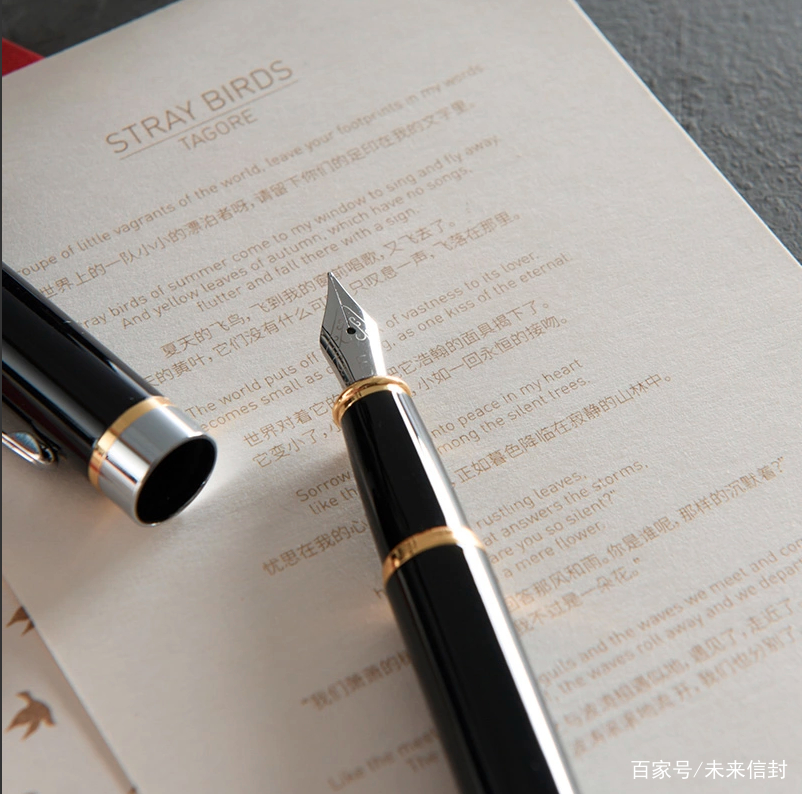 STRAY BIRDS
TAGORE
oupe of little vagrants of the world, leave your footprints in my words
世界上的一队小小的漂泊者呀,请留下你们的足印在我的文字里。
ray birds of summer come to my window to sing and fly away
And yellow leaves of autumn, which have no songs,
flutter and fall there with a sign.
夏天的飞鸟,飞到我的窗前唱歌,又飞去了。
的黄叶,它们没有什么可 只叹息一声,飞落在那里。
The world puts off of vastness to its lover.
comes small as g, as one kiss of the eternal.
世界对着它的 把它浩瀚的面具揭下了。
它变小了, 小如一回永恒的接吻。
Sorrow nto peace in my heart
like th among the silent trees.
忧思在我的心 正如暮色降临在寂静的山林中。
rustling leaves,
at answers the storms,
are you so silent?"
a mere flower.
"我们萧萧的 回答那风和雨。你是谁呢,那样的沉默着?"
我不过是一朵花。"
Like the guils and the waves we meet and com
The the waves roll away and we depar
遇见了,走近了
我们也分别了
百家号/未来信封